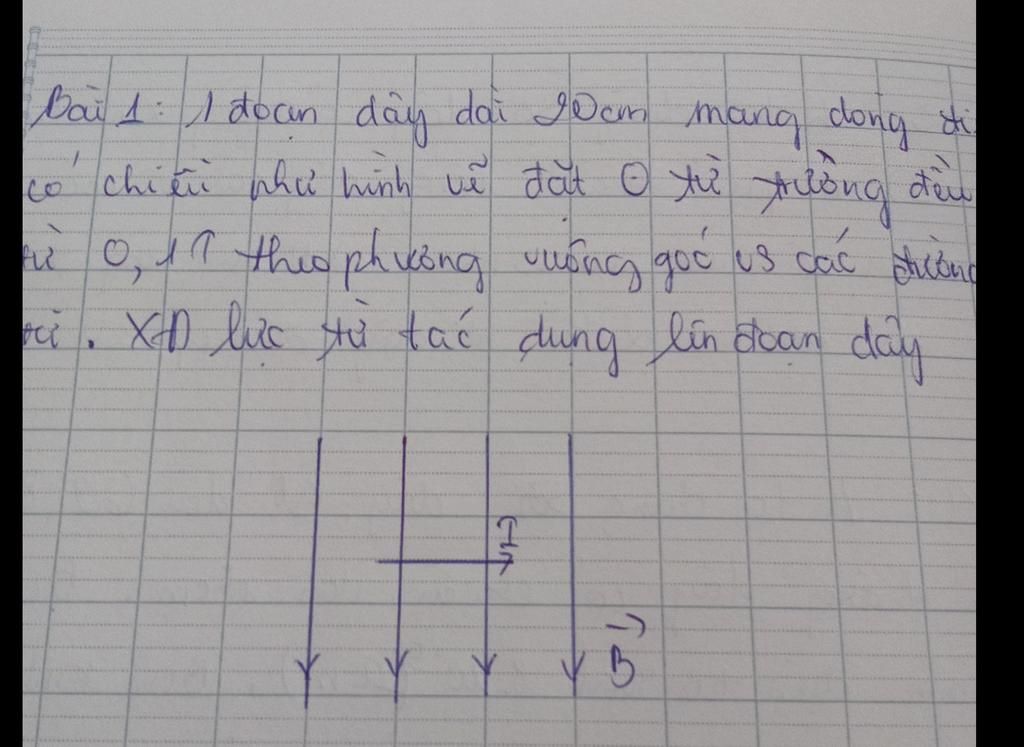 Bài 1: 1 đoạn dây dài 20cm mang dòng đi
có chiều như hình vẽ đặt ⊖ từ trường đều
từ 0,1T theo phương vuông góc vs các đường
từ. XĐ lực từ tác dụng lên đoạn dây
I
B